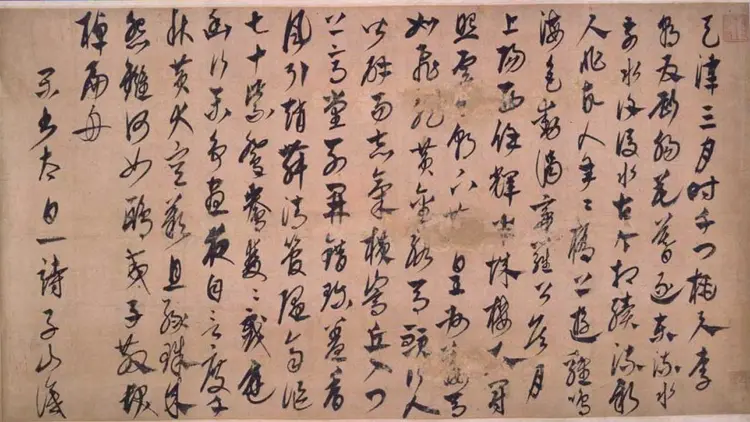 天津三月時千門桃與李
朝為斷腸花暮逐東流水
前水復後水古今相續流新
人非故人年年橋上遊雞鳴
海色動謁帝羅公侯月
上陽西餘輝半城樓衣冠
照雲日朝下皇州鞍馬
如飛龍黃金絡馬頭行人
皆辟易志氣橫嵩丘入門
上高堂列鼎錯珍羞香
風引趙舞清管隨齊謳
七十紫鴛鴦雙雙戲庭
幽行樂爭晝夜自言度千
秋黃犬空歎息綠珠成
怨讎何如鴟夷子散髮
棹扁舟
右李太白一詩子山識